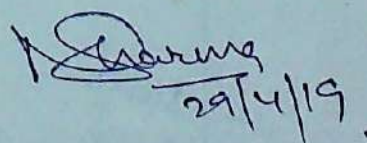 NSharma
29/4/19